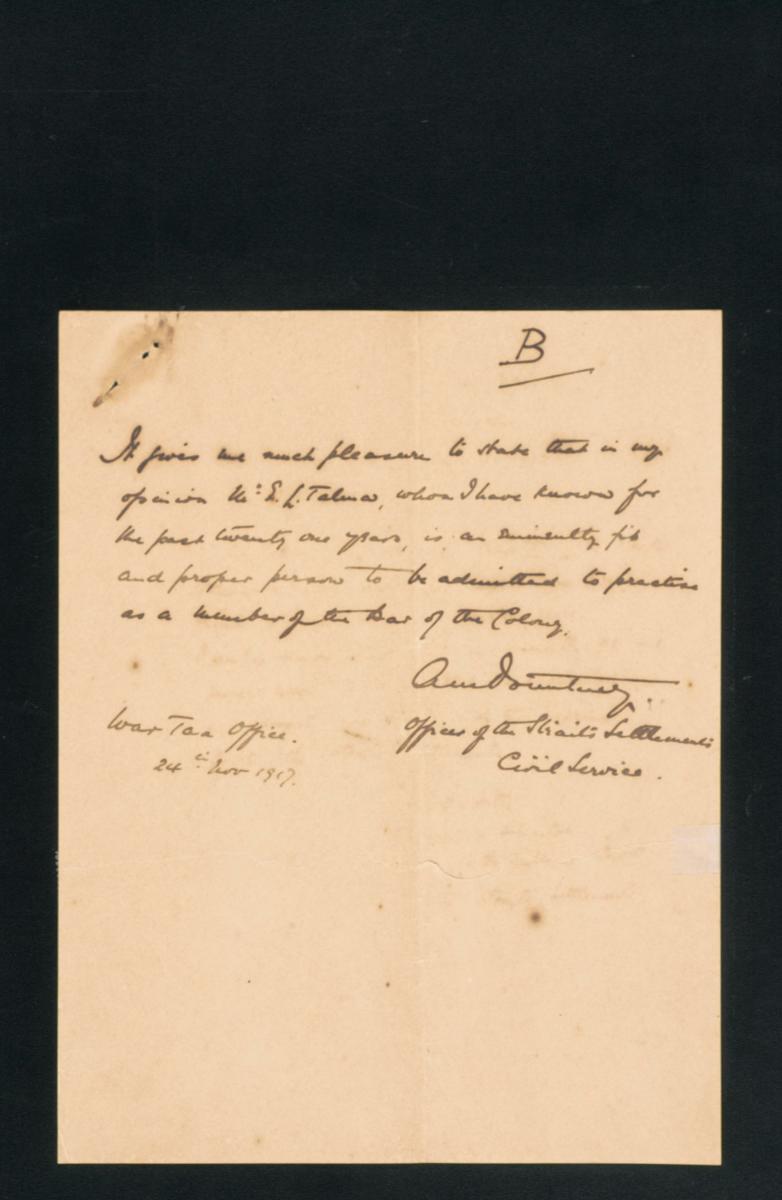 B
It gives me much pleasure to state that in my
opinion Mr. E. L. Talma, whom I have known for
the past twenty one years, is an eminently fit
and proper person to be admitted to practise
as a member of the Bar of the Colony.
War Tax Office.
24th Nov 1917.
Officer of the Straits Settlements
Civil Service.